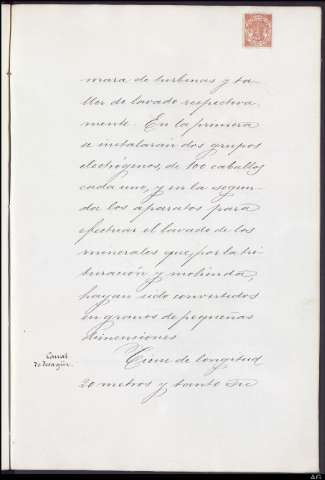 mara de turbinas y ta-
ller de lavado respectiva-
mente. En la primera
se instalarán dos grupos
electrógenos, de 100 caballos
cada uno, y en la segun-
da los aparatos para
efectuar el lavado de los
minerales que, por la tri-
turación y molienda,
hayan sido convertidos
en granos de pequeñas
dimensiones
Canal
de desagüe.
Tiene de longitud
20 metros y tanto su